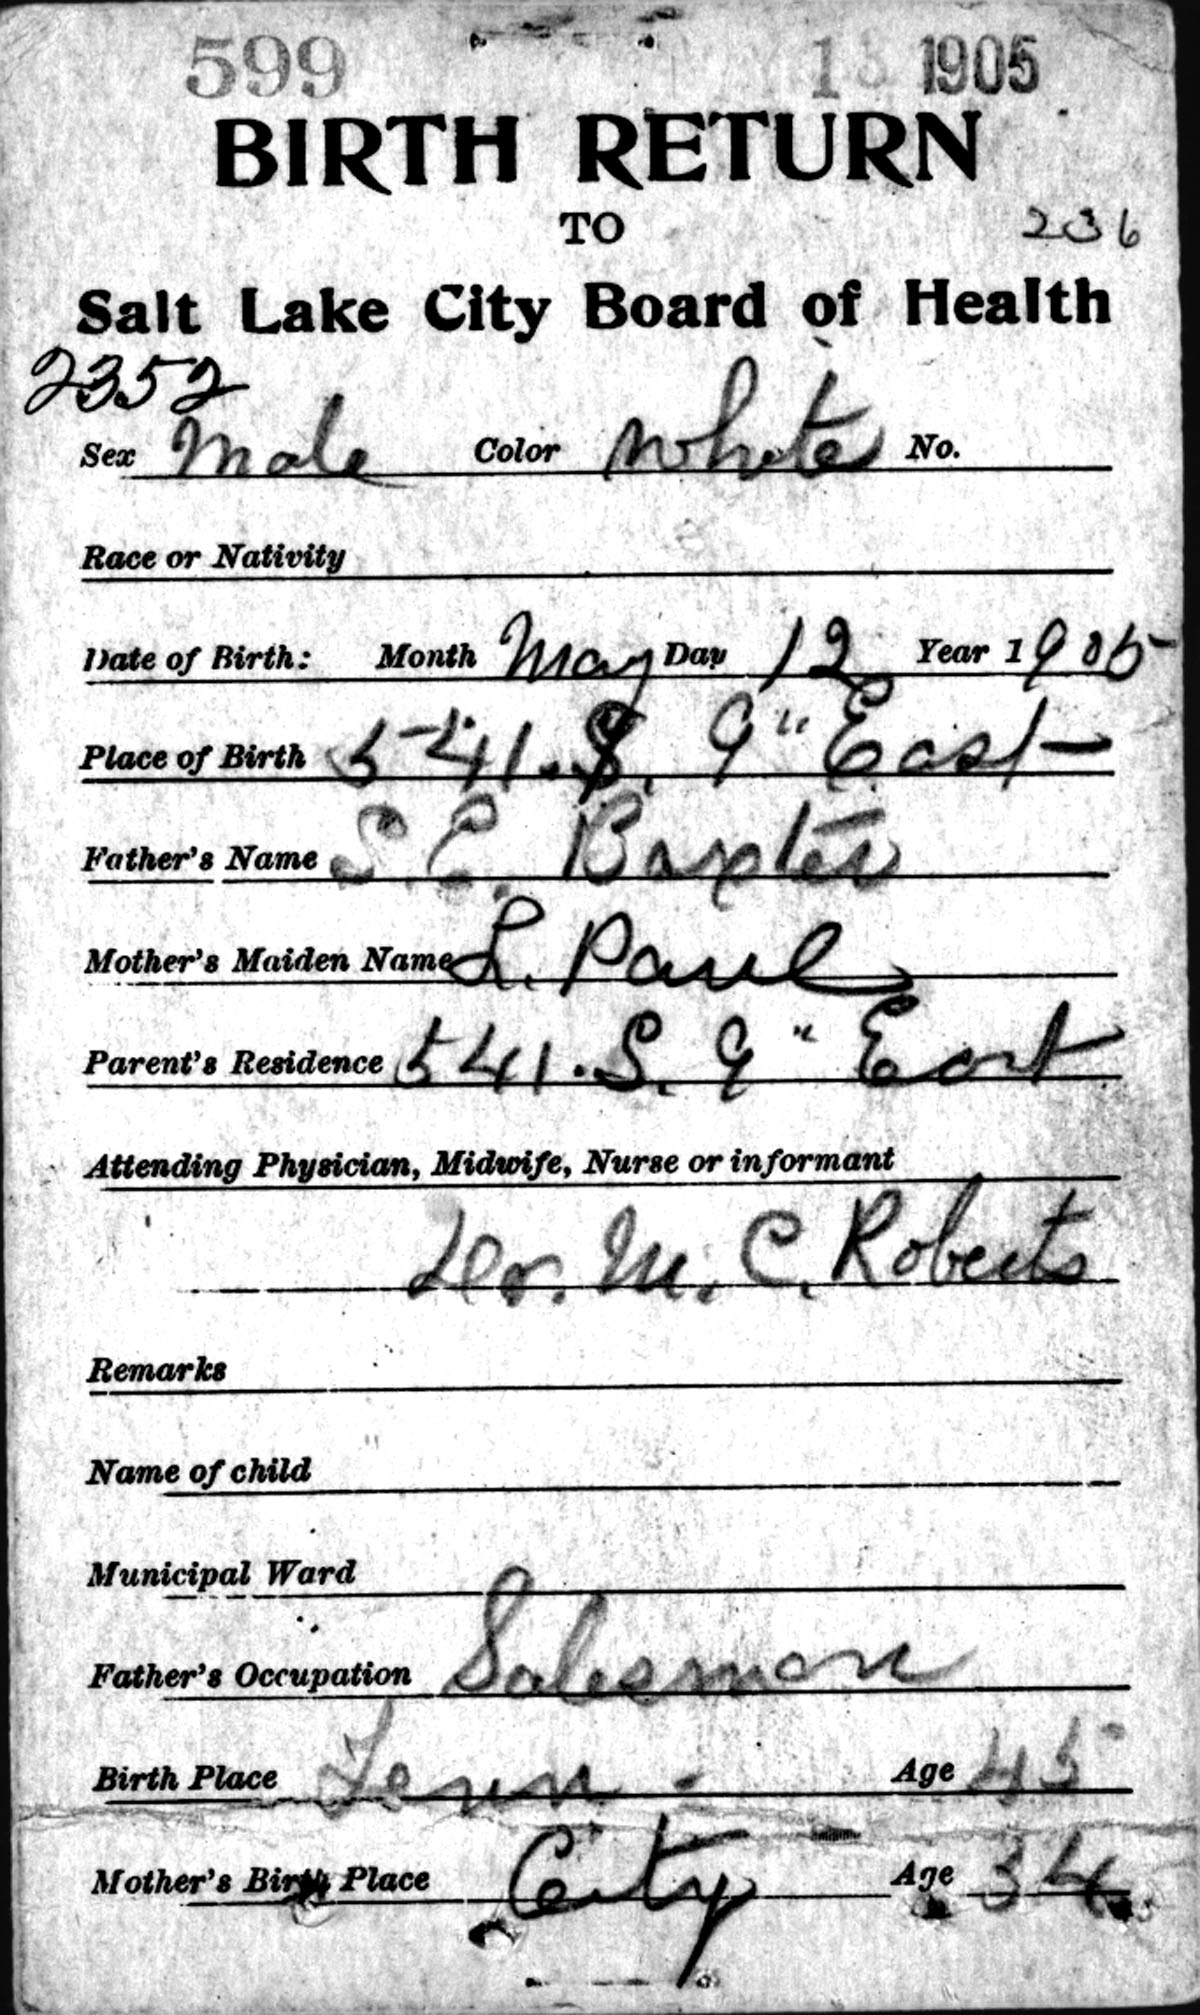 599 1905
BIRTH RETURN
TO
236
Salt Lake City Board of Health
2352
Sex Male Color White No.
Race or Nativity
Date of Birth: Month May Day 12 Year 1905
Place of Birth 541. S. 9" East
Father's Name S. E. Baxter
Mother's Maiden Name L. Paul
Parent's Residence 541. S. 9" East
Attending Physician, Midwife, Nurse or informant
Dr. M. C. Roberts
Remarks
Name of child
Municipal Ward
Father's Occupation Salesman
Birth Place Tenn - Age 45
Mother's Birth Place City Age 34